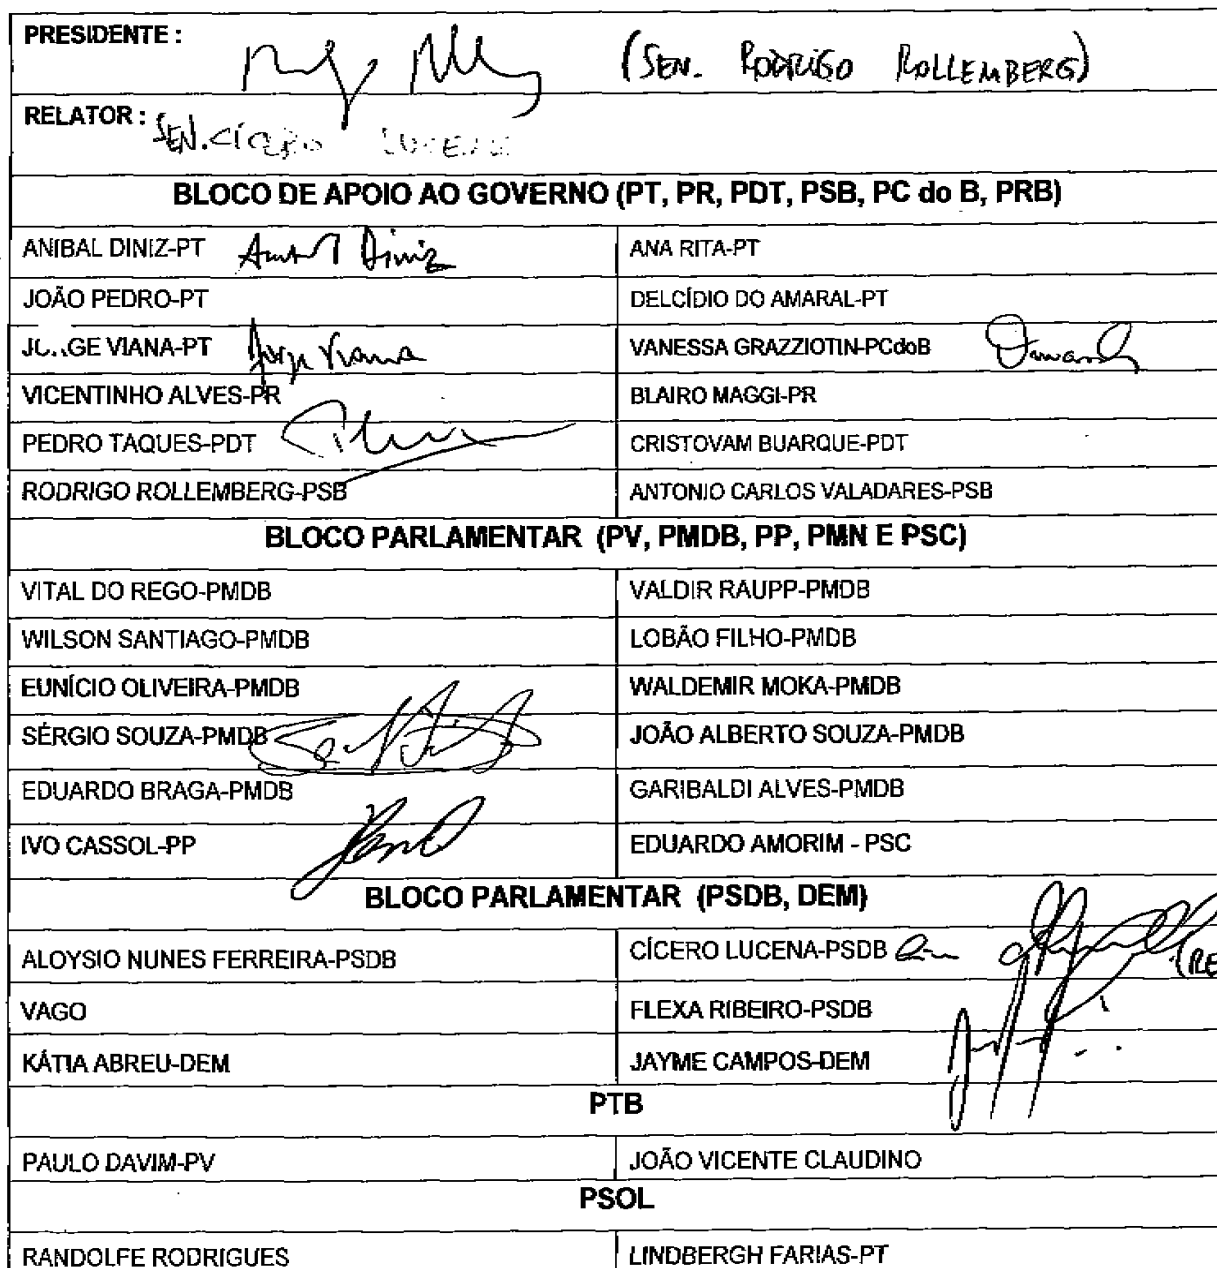 PRESIDENTE :
(SEN. RODRIGO ROLLEMBERG)
RELATOR : SEN. CÍCERO LUCENA
BLOCO DE APOIO AO GOVERNO (PT, PR, PDT, PSB, PC do B, PRB)
ANIBAL DINIZ-PT Anibal Diniz ANA RITA-PT
JOÃO PEDRO-PT DELCÍDIO DO AMARAL-PT
JO..GE VIANA-PT Jorge Viana VANESSA GRAZZIOTIN-PCdoB
VICENTINHO ALVES-PR BLAIRO MAGGI-PR
PEDRO TAQUES-PDT CRISTOVAM BUARQUE-PDT
RODRIGO ROLLEMBERG-PSB ANTONIO CARLOS VALADARES-PSB
BLOCO PARLAMENTAR (PV, PMDB, PP, PMN E PSC)
VITAL DO REGO-PMDB VALDIR RAUPP-PMDB
WILSON SANTIAGO-PMDB LOBÃO FILHO-PMDB
EUNÍCIO OLIVEIRA-PMDB WALDEMIR MOKA-PMDB
SÉRGIO SOUZA-PMDB JOÃO ALBERTO SOUZA-PMDB
EDUARDO BRAGA-PMDB GARIBALDI ALVES-PMDB
IVO CASSOL-PP EDUARDO AMORIM - PSC
BLOCO PARLAMENTAR (PSDB, DEM)
ALOYSIO NUNES FERREIRA-PSDB CÍCERO LUCENA-PSDB (RE
VAGO FLEXA RIBEIRO-PSDB
KÁTIA ABREU-DEM JAYME CAMPOS-DEM
PTB
PAULO DAVIM-PV JOÃO VICENTE CLAUDINO
PSOL
RANDOLFE RODRIGUES LINDBERGH FARIAS-PT